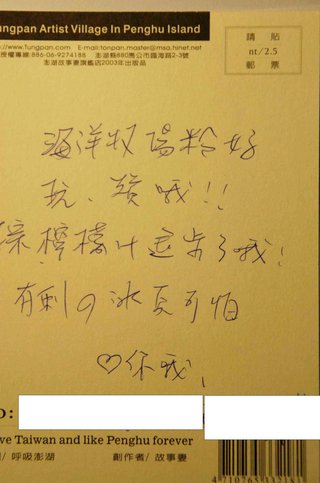 ungpan Artist Village In Penghu Island
://www.fungpan.com E-mail:tonpan.master@msa.hinet.net
授權專線:886-06-9274188 澎湖縣880馬公市臨海路2-3號
澎湖故事妻旗艦店2003年出版品
請貼
nt/2.5
郵票
海洋牧場粉好
玩、讚哦!!
檸檬汁
有刺の冰頁可怕
♡你哦
D:
ve Taiwan and like Penghu forever
/ 呼吸澎湖 創作者/ 故事妻